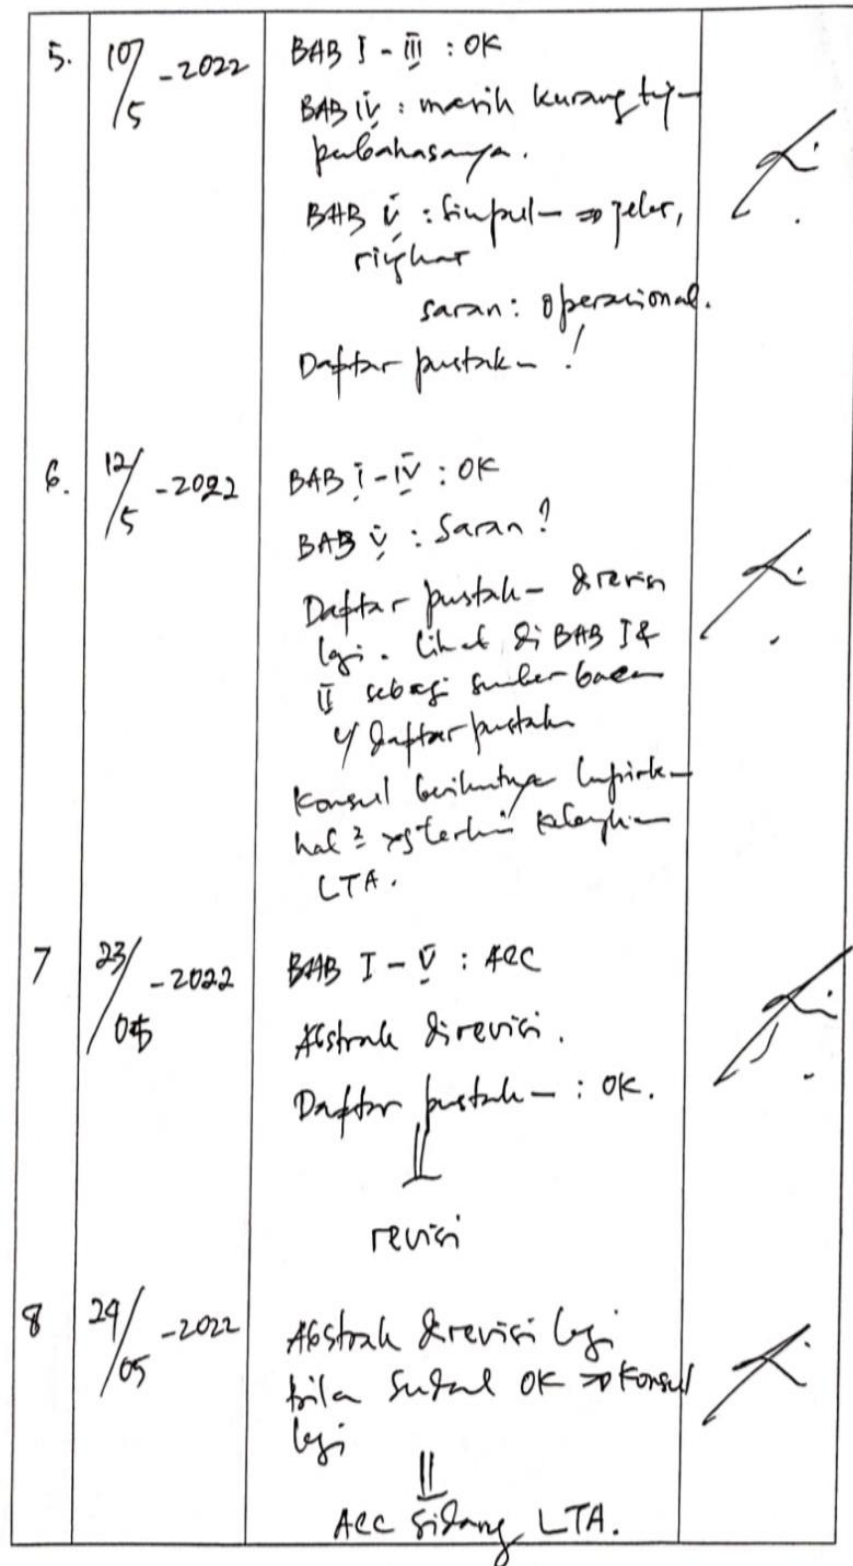 5. 10/5 - 2022 BAB I - III : OK
BAB IV : masih kurang
pebahasanya.
BAB V : Simpul- => jelas,
ringkas
saran : operasional.
Daftar pustaka !
6. 12/5 - 2022 BAB I - IV : OK
BAB V : Saran ?
Daftar pustak- direvisi
lgi. lihat di BAB I &
II sebagi sumber bacaan
y/ daftar pustaka
Konsul berikutnya lapirk-
hal2 yg
LTA.
7 23/05 - 2022 BAB I - V : ACC
Abstrak direvisi.
Daftar pustak- : OK.
revisi
8 24/05 - 2022 Abstrak direvisi lgi
bila sudah OK => Konsul
lgi
ACC Sidang LTA.